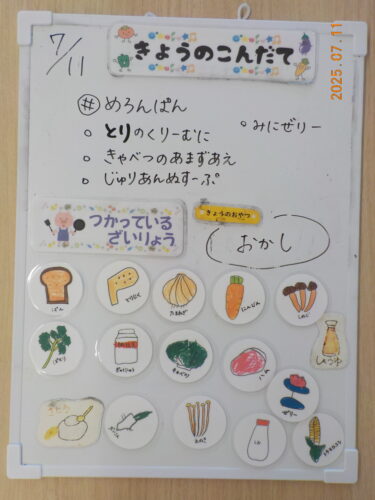 2025.07.11
7/11
きょうのこんだて
㊗ めろんぱん
。とりのくりーむに
。みにぜりー
。きゃべつのあまずあえ
。じゅりあんぬすーぷ
つかっている
ざいりょう
きょうのおやつ
おかし
ぱん
とりにく
たまねぎ
にんじん
しめじ
ぱせり
ぎゅうにゅう
きゃべつ
はむ
しょうゆ
ゼリー
さとう
えのき
しお